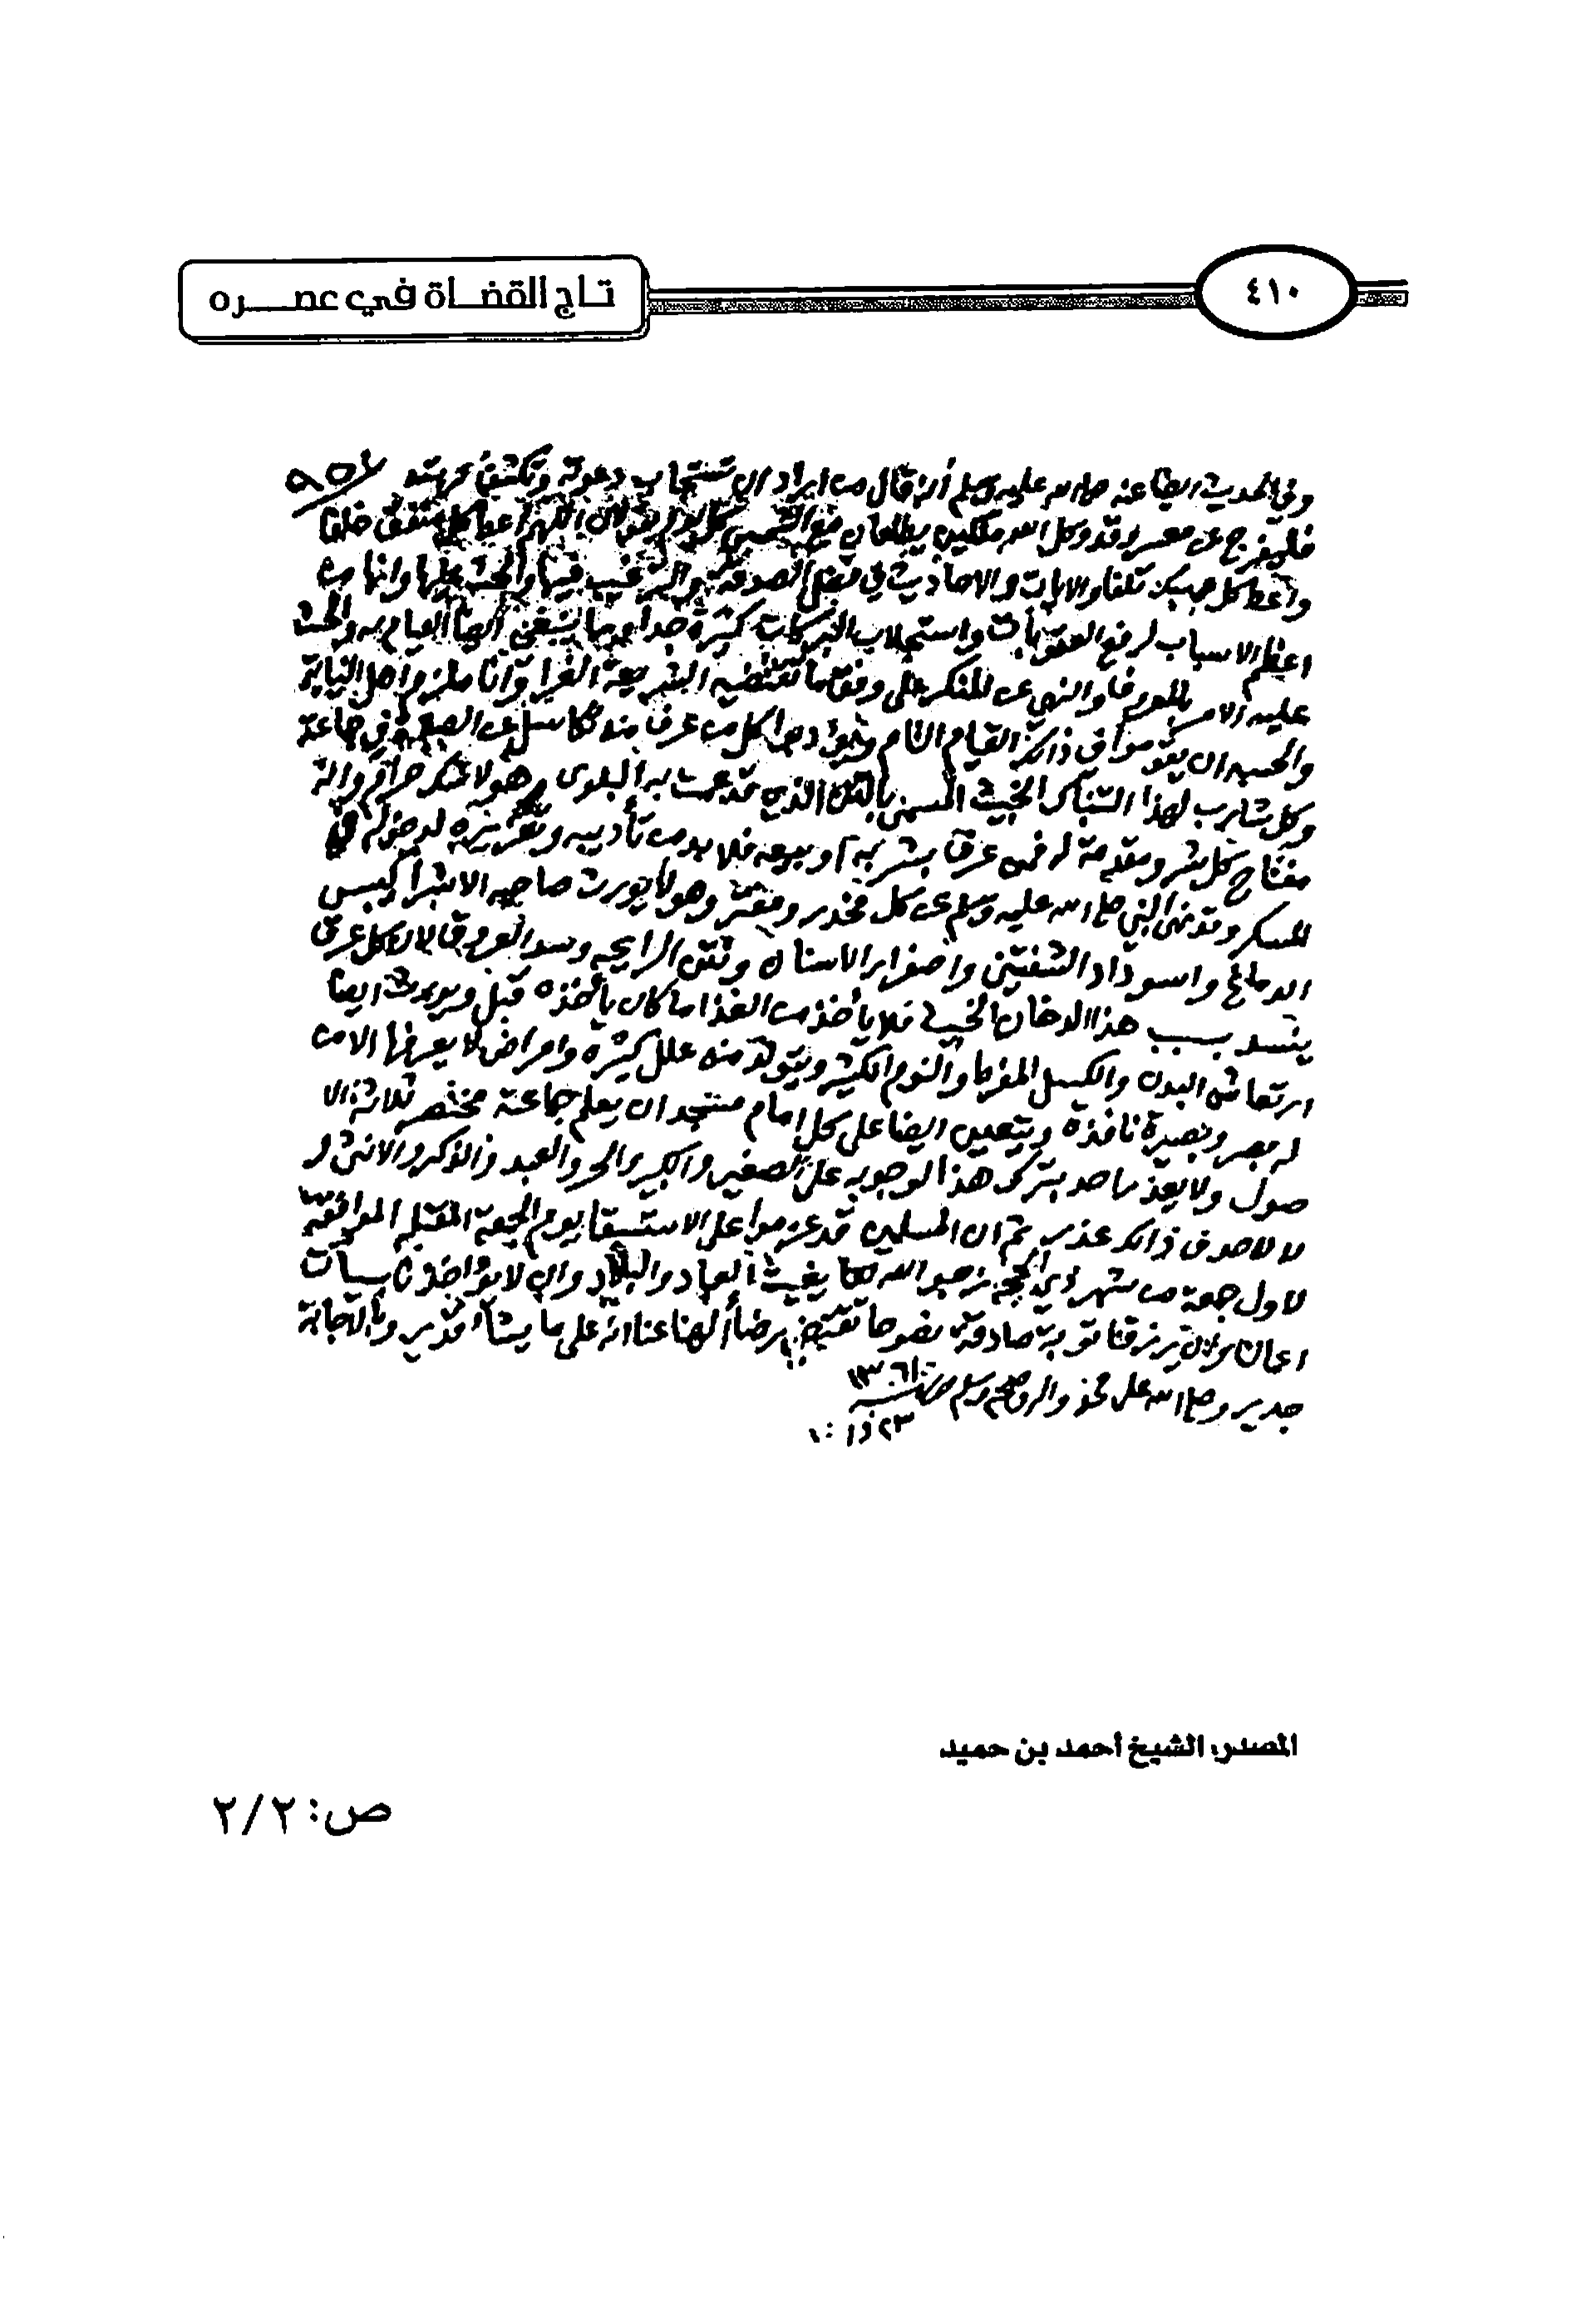 ٤١٠
تاج القضاة في عصره
وفي الحديث ايضا عنه صلى الله عليه وسلم أنه قال من اراد ان تستجاب دعوته وتكشف كربته
فليفرج عن معسر وقد وكل الله ملكين يطلعان مع الشمس كل يوم يقولان اللهم اعط كل منفق خلفا
واعط كل ممسك تلفا والايات والاحاديث في فضل الصدقة والترغيب فيها والحث عليها وانها من
اعظم الاسباب لرفع العقوبات واستجلاب البركات كثيرة جدا ومما ينبغي ايضا القيام به والحث
عليه الامر بالمعروف والنهي عن المنكر على وفق ما تقتضيه الشريعة الغرا وانا ملزم اهل النيابة
والحسبه ان يقوموا في ذالك القيام التام ويؤدبوا كل من عرف منه تكاسل عن الصلوة في جماعة
وكل شارب لهذا التنباك الخبيث المسمى بالتتن الذي قد عمت به البلوى وهو لا شك حرام وانه
مفتاح كل شر ومقدمة له فمن عرف بشربه او بيعه فلا بد من تأديبه وتعزيره لدخوله في
المسكر وقد نهى النبي صلى الله عليه وسلم عن كل مخدر ومفتر وهو لا يورث صاحبه الا شرا كيبس
الدماغ واسوداد الشفتين واصفرار الاسنان ونتن الرايحه وسد العروق لان كل عرق
ينسد بسبب هذا الدخان الخبيث فلا يأخذ من الغذا ما كان يأخذه قبل ويورث ايضا
ارتعاش البدن والكسل المفرط والنوم الكثير ويتولد منه علل كثيره وامراض لا يعرفها الا من
له بصر وبصيرة نافذه ويتعين ايضا على كل امام مسجد ان يعلم جماعته مختصر ثلاثة الا
صول ولا يعذر احد بترك هذا لوجوبه على الصغير والكبير والحر والعبد والذكر والانثى و
لا لاحد في ذالك عذر ثم ان المسلمين قد عزموا على الاستسقا يوم الجمعة المقبله الموافقة
لاول جمعة من شهر ذي الحجه نرجوا الله ان يغيث العباد والبلاد وان لا يؤاخذنا بسيآت
اعمالنا وان يرزقنا توبة صادقة نصوحا تقتضي رضا الهنا عنا انه على ما يشآء قدير وبالاجابة
جدير وصلى الله على محمد واله وصحبه وسلم
المصدر: الشيخ أحمد بن حميد
ص: ٢/٢